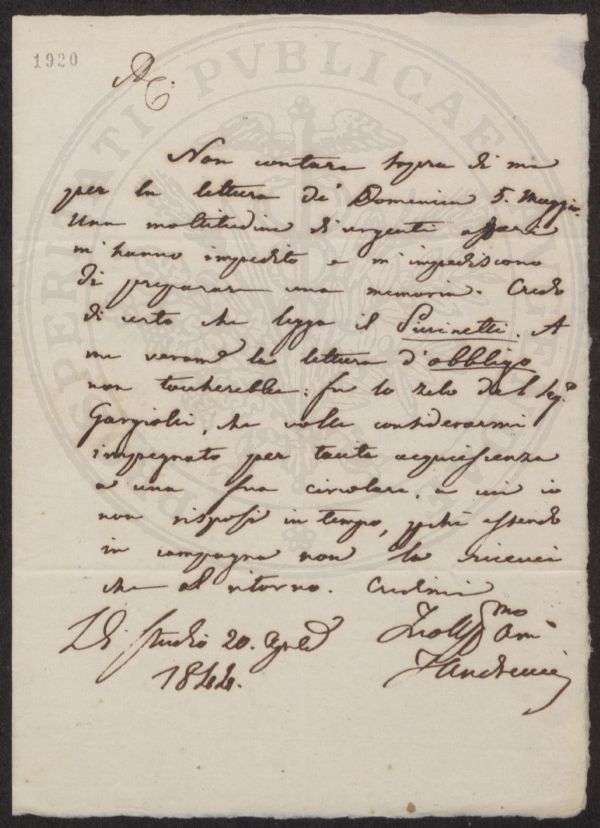 1920
A. C.
Non contare sopra di me
per la lettura de' Domenica 5. Maggio.
Una moltitudine d'urgenti affari
m'hanno impedito e m'impediscono
di preparare una memoria. Credo
di certo che legga il Puccinelli. A
me verame la lettura d'obbligo
non toccherebbe: fu lo zelo del Seg.
Gargiolli, che volle considerarmi
impegnato per tacita acquiescenza
a una sua circolare, a cui io
non risposi in tempo, pché essendo
in campagna non la ricevei
che al ritorno. Credimi
Di Studio 20. Aprile
1844.
mo
Am